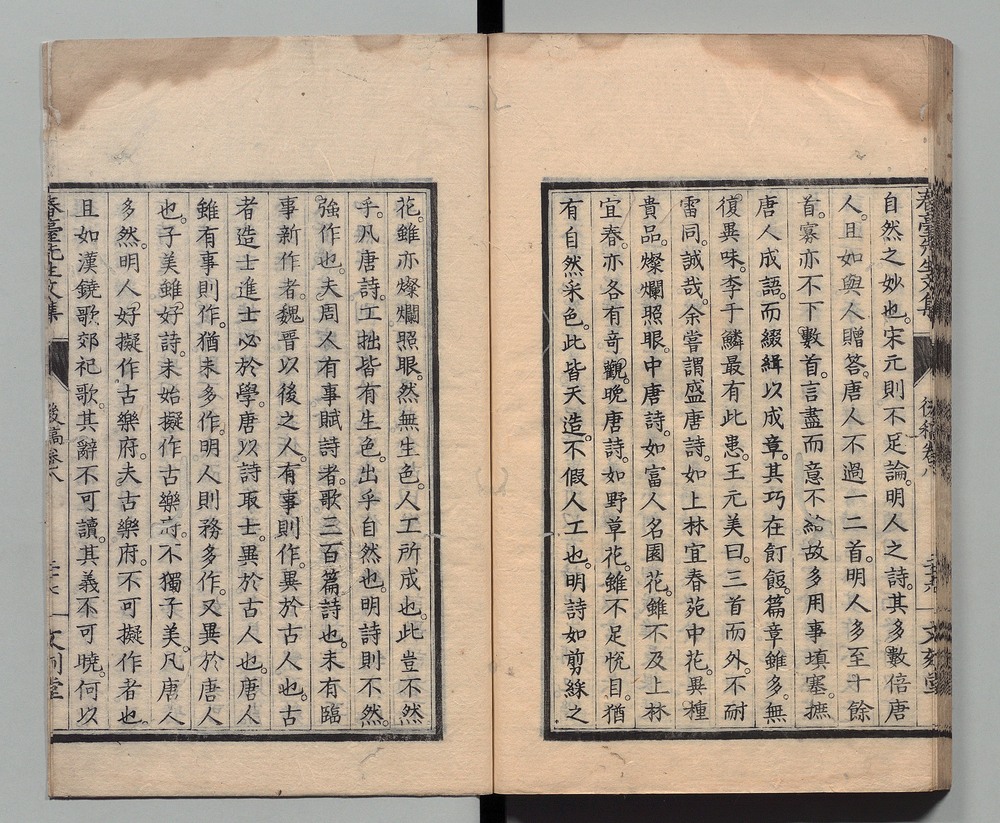 春臺先生文集 後稿卷八 文刻堂
自然之妙也。宋元則不足論。明人之詩。其多數倍唐
人。且如與人贈答。唐人不過一二首。明人多至十餘
首。寡亦不下數首。言盡而意不給。故多用事填塞。摭
唐人成語。而綴緝以成章。其巧在飣餖。篇章雖多。無
復異味。李于鱗最有此患。王元美曰。三首而外。不耐
雷同。誠哉。余嘗謂盛唐詩。如上林宜春苑中花。異種
貴品。燦爛照眼。中唐詩。如富人名園花。雖不及上林
宜春。亦各有奇觀。晚唐詩。如野草花。雖不足悅目。猶
有自然采色。此皆天造。不假人工也。明詩如剪綵之
花。雖亦燦爛照眼。然無生色。人工所成也。此豈不然
乎。凡唐詩。工拙皆有生色。出乎自然也。明詩則不然。
強作也。夫周人有事賦詩者。歌三百篇詩也。未有臨
事新作者。魏晉以後之人。有事則作。異於古人也。古
者造士進士必於學。唐以詩取士。異於古人也。唐人
雖有事則作。猶未多作。明人則務多作。又異於唐人
也。子美雖好詩。未始擬作古樂府。不獨子美。凡唐人
多然。明人好擬作古樂府。夫古樂府。不可擬作者也。
且如漢鐃歌郊祀歌。其辭不可讀。其義不可曉。何以
春臺先生文集 後稿卷八 文刻堂